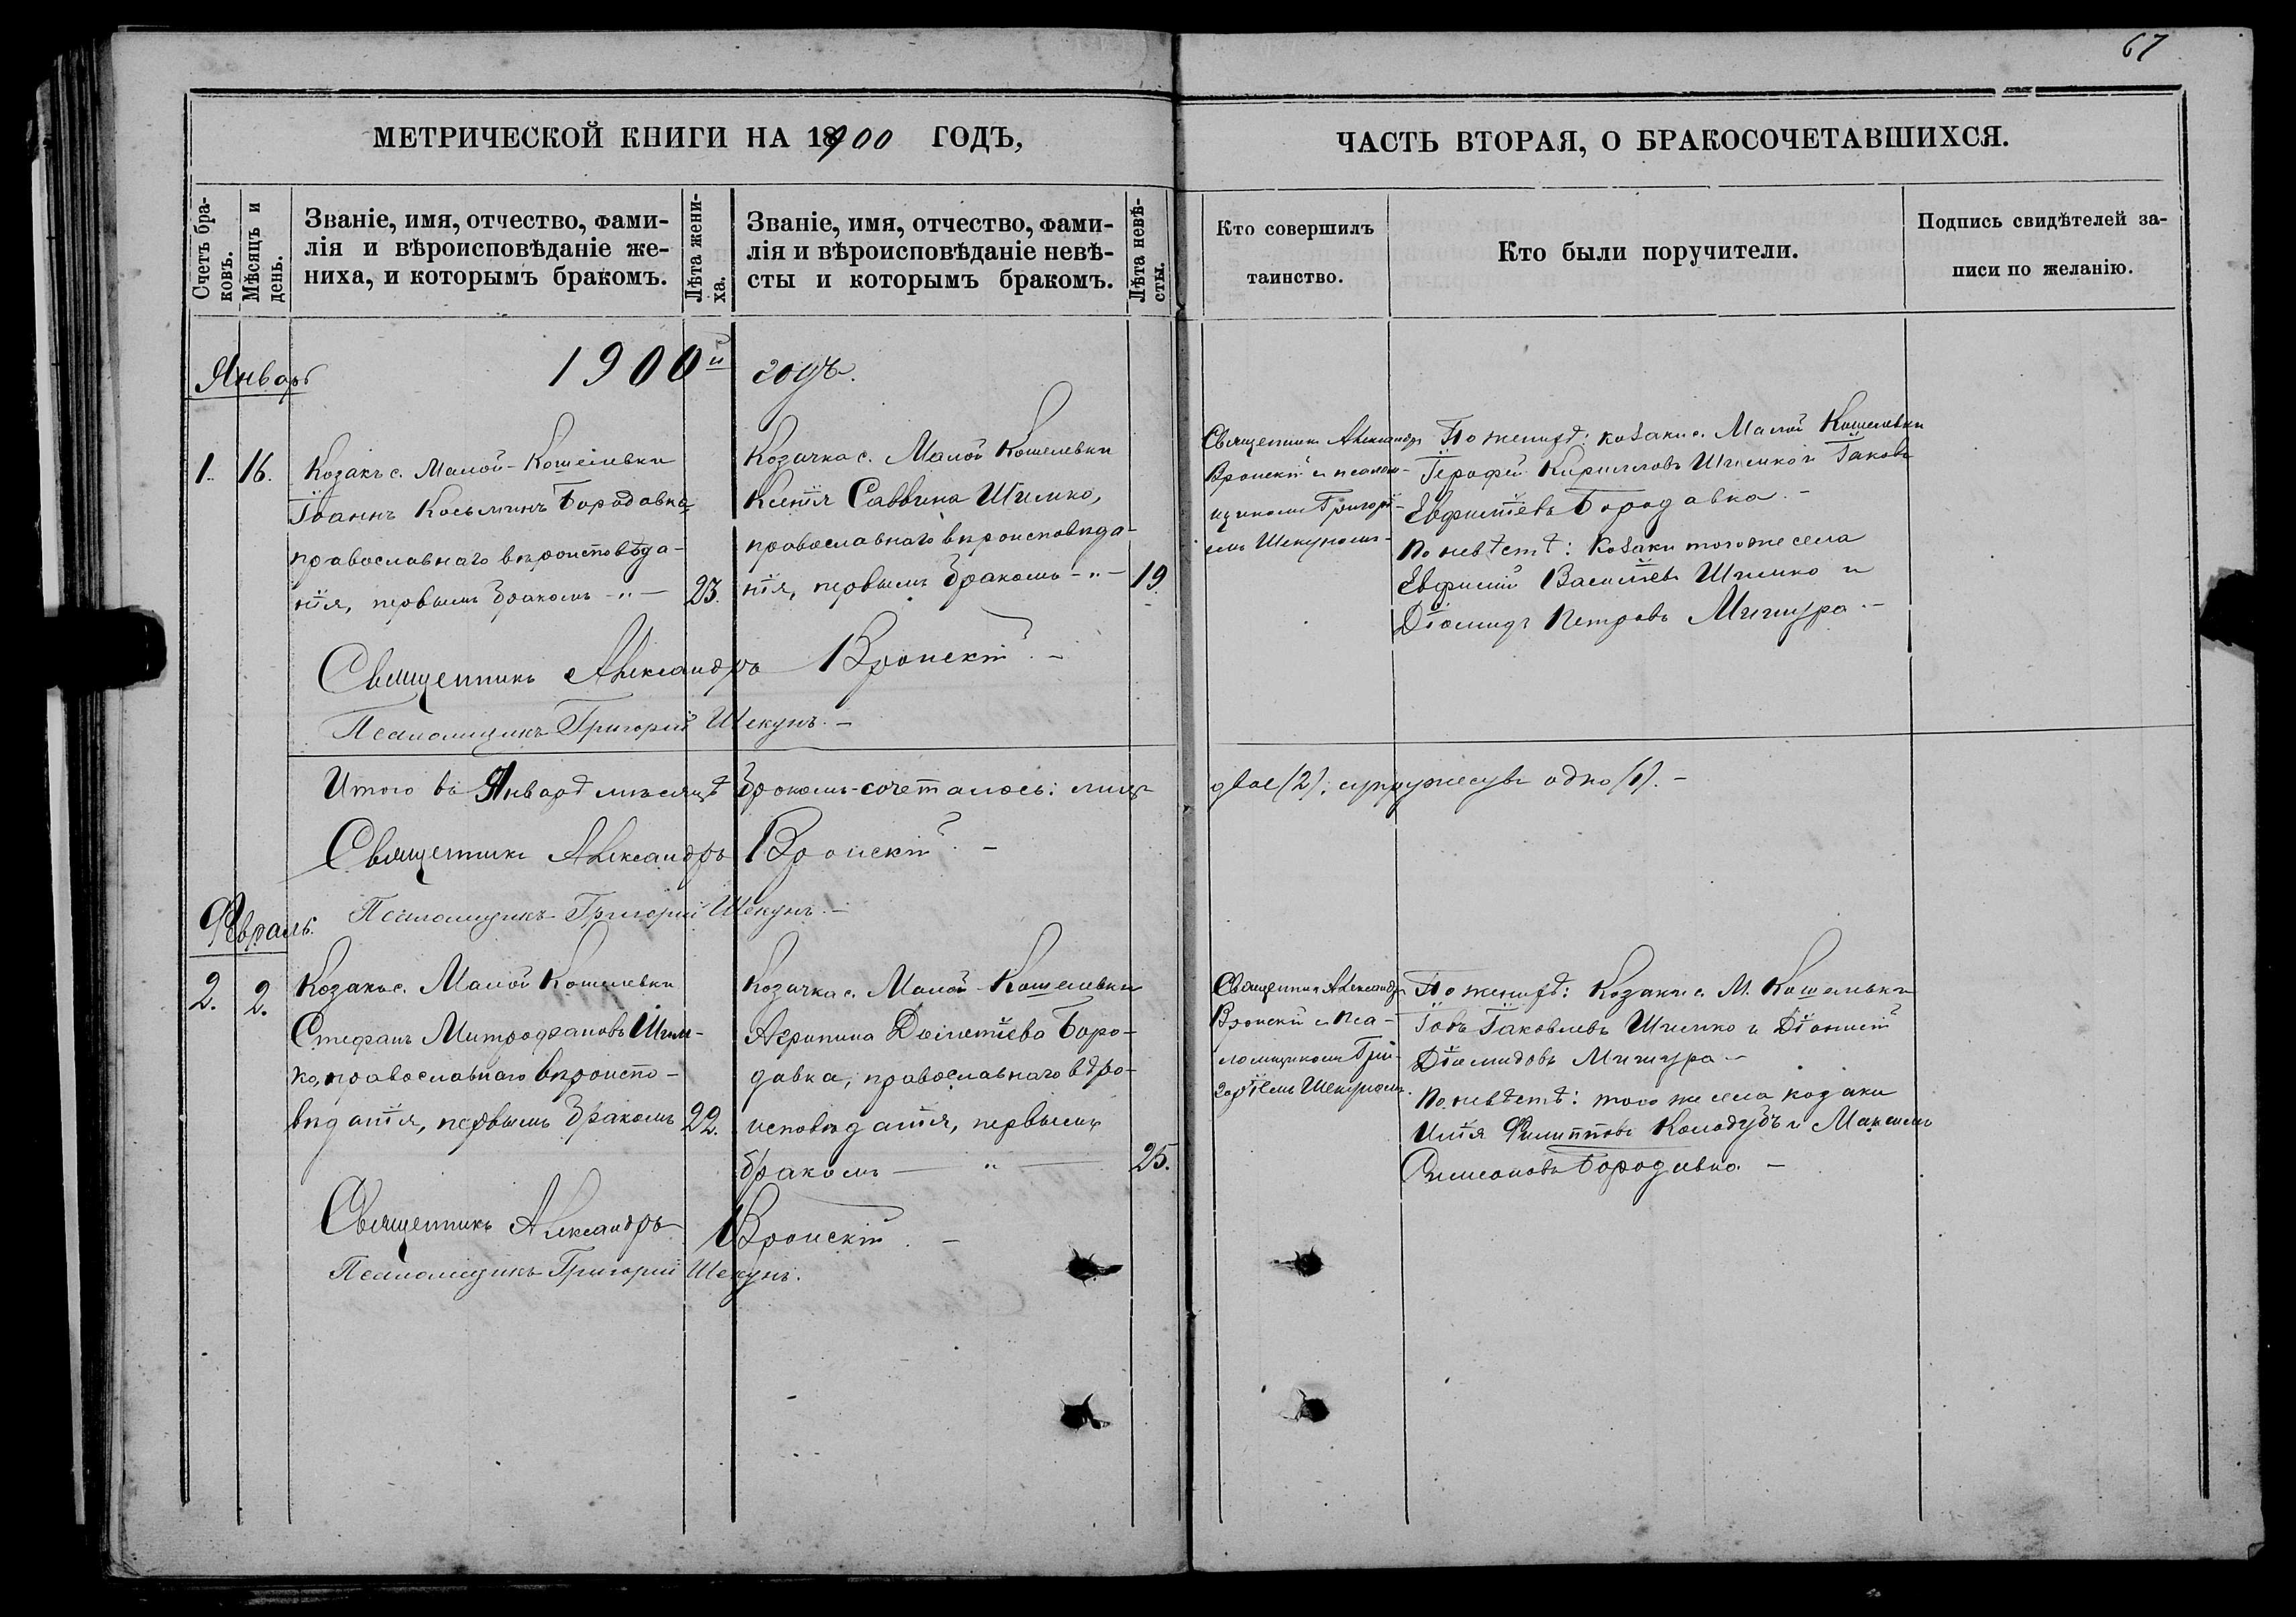 67
МЕТРИЧЕСКОЙ КНИГИ НА 1900 ГОДЪ,
ЧАСТЬ ВТОРАЯ, О БРАКОСОЧЕТАВШИХСЯ.
Счетъ бра-
ковъ.
Мѣсяцъ и
день.
Званіе, имя, отчество, фами-
лія и вѣроисповѣданіе же-
ниха, и которымъ бракомъ.
Лѣта жени-
ха.
Званіе, имя, отчество, фами-
лія и вѣроисповѣданіе невѣ-
сты и которымъ бракомъ.
Лѣта невѣ-
сты.
Кто совершилъ
таинство.
Кто были поручители.
Подпись свидѣтелей за-
писи по желанію.
Январь
1900й годъ.
1. 16.
Козакъ с. Малой-Кошелевки
Іоаннъ Косьминъ Бородавка
православнаго вѣроисповѣда-
нія, первымъ бракомъ -"-
23.
Козачка с. Малой Кошелевки
Ксенія Саввина Шимко,
православнаго вѣроисповѣда-
нія, первымъ бракомъ -"-
19.
Священникъ Александръ
Вронскій и псалом-
щикомъ Григорі-
емъ Шекуномъ
По женихѣ: козаки с. Малой Кошелевки
Іерофей Кирилловъ Шимко и Іаковъ
Евфиміевъ Бородавка. -
По невѣстѣ: Козаки того же села
Евфимій Василіевъ Шимко и
Діомидъ Петровъ Мишура -
Священникъ Александръ Вронскій. -
Псаломщикъ Григорій Шекунъ. -
Итого въ Январѣ мѣсяцѣ бракомъ-сочеталось: лицъ двое (2), супружествъ одно (1). -
Священникъ Александръ Вронскій. -
Псаломщикъ Григорій Шекунъ. -
Февраль.
2. 2.
Козакъ с. Малой Кошелевки
Стефанъ Митрофановъ Шим-
ко, православнаго вѣроиспо-
вѣданія, первымъ бракомъ
22.
Козачка с. Малой-Кошелевки
Агрипина Боро-
давка, православнаго вѣро-
исповѣданія, первымъ
бракомъ — " —
25.
Священникъ Александръ
Вронскій и Пса-
ломщикомъ Гри-
горіемъ Шекуномъ.
По женихѣ: Козаки с. М. Кошелевки
Іовъ Іаковлевъ Шимко и Діонисій
Діомидовъ Мишура -
По невѣстѣ: того же села козаки
Илія Филипповъ Колодубъ и Максимъ
Симеоновъ Бородавка. -
Священникъ Александръ Вронскій. -
Псаломщикъ Григорій Шекунъ.